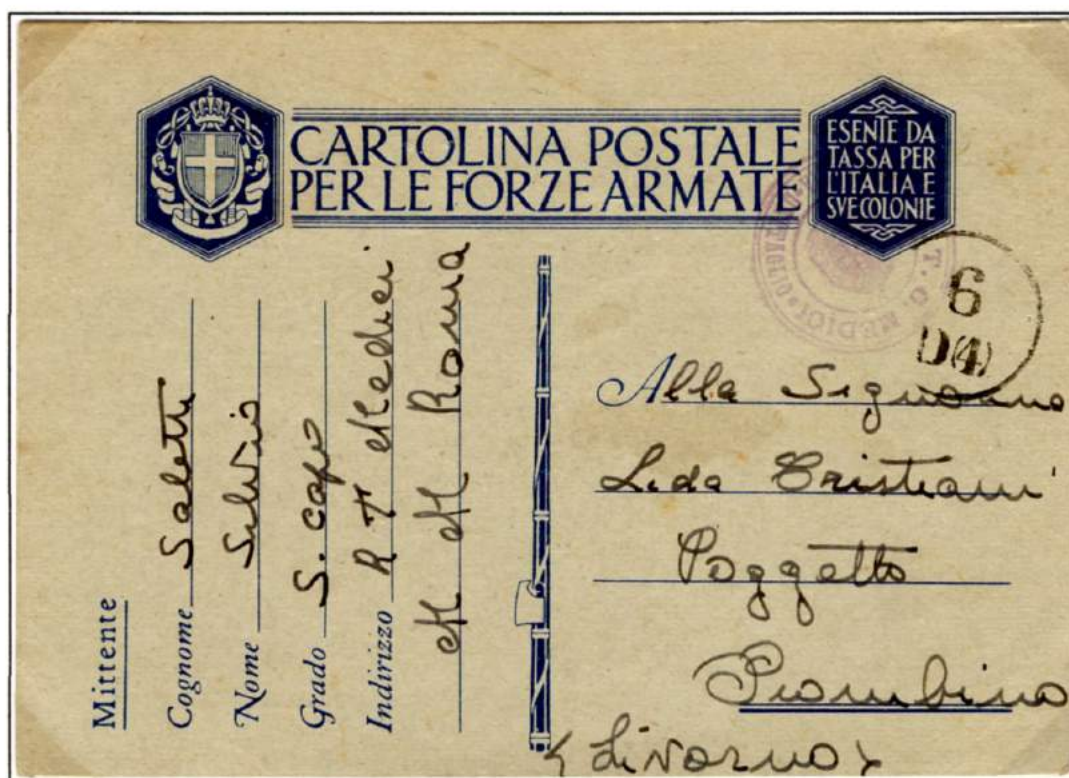 CARTOLINA POSTALE
PER LE FORZE ARMATE
ESENTE DA
TASSA PER
L'ITALIA E
SVE COLONIE
T. C. MEDICI
6
D(4)
Mittente
Cognome Saletti
Nome Silvio
Grado S. capo
Indirizzo R Tr Medici
M M Roma
Alla Signorina
Leda Cristiani
Poggetto
Piombino
(Livorno)